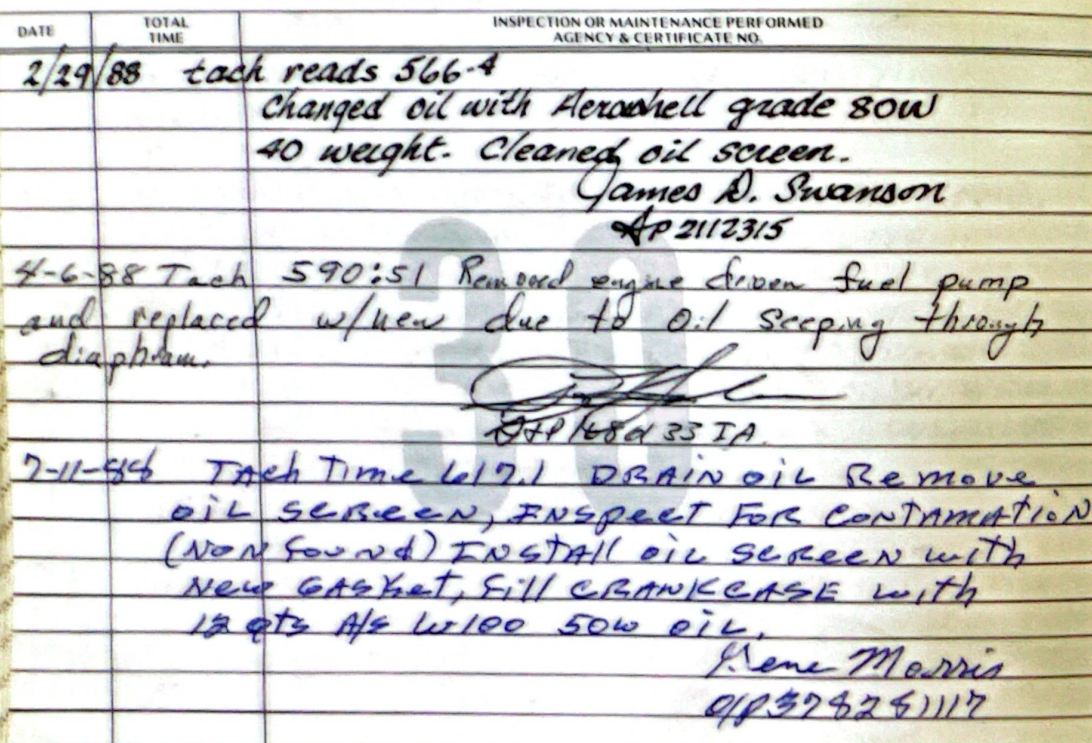 DATE TOTAL TIME INSPECTION OR MAINTENANCE PERFORMED AGENCY & CERTIFICATE NO.
30
2/29/88 tach reads 566.4
Changed oil with Aeroshell grade 80W
40 weight. Cleaned oil screen.
James D. Swanson
AP 2112315
4-6-88 Tach 590:51 Removed engine driven fuel pump
and replaced w/new due to oil seeping through
diaphram.
IA
7-11-88 Tach Time 617.1 DRAIN OIL Remove
OIL SCREEN, INSPECT FOR CONTAMATION
(NON FOUND) INSTALL OIL SCREEN with
New GASKET, Fill CRANKCASE with
12 qts A/S W100 50W OIL.
Gene Morris